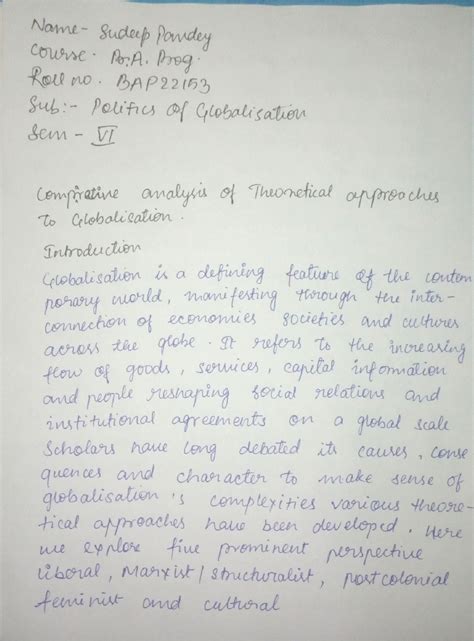 Name- Sudeep Pandey
Course- B.A. Prog.
Roll no. BAP22153
Sub:- Politics Of Globalisation
Sem - VI
Comparative analysis of Theoretical approaches
To Globalisation.
Introduction
Globalisation is a defining feature of the contem
porary world, manifesting through the inter-
connection of economies societies and cultures
across the globe. It refers to the increasing
flow of goods, services, capital information
and people reshaping social relations and
institutional agreements on a global scale
Scholars have long debated its causes, conse
quences and character to make sense of
globalisation's complexities various theore-
tical approaches have been developed. Here
we explore five prominent perspective
liberal, Marxist/structuralist, postcolonial
feminist and cultural